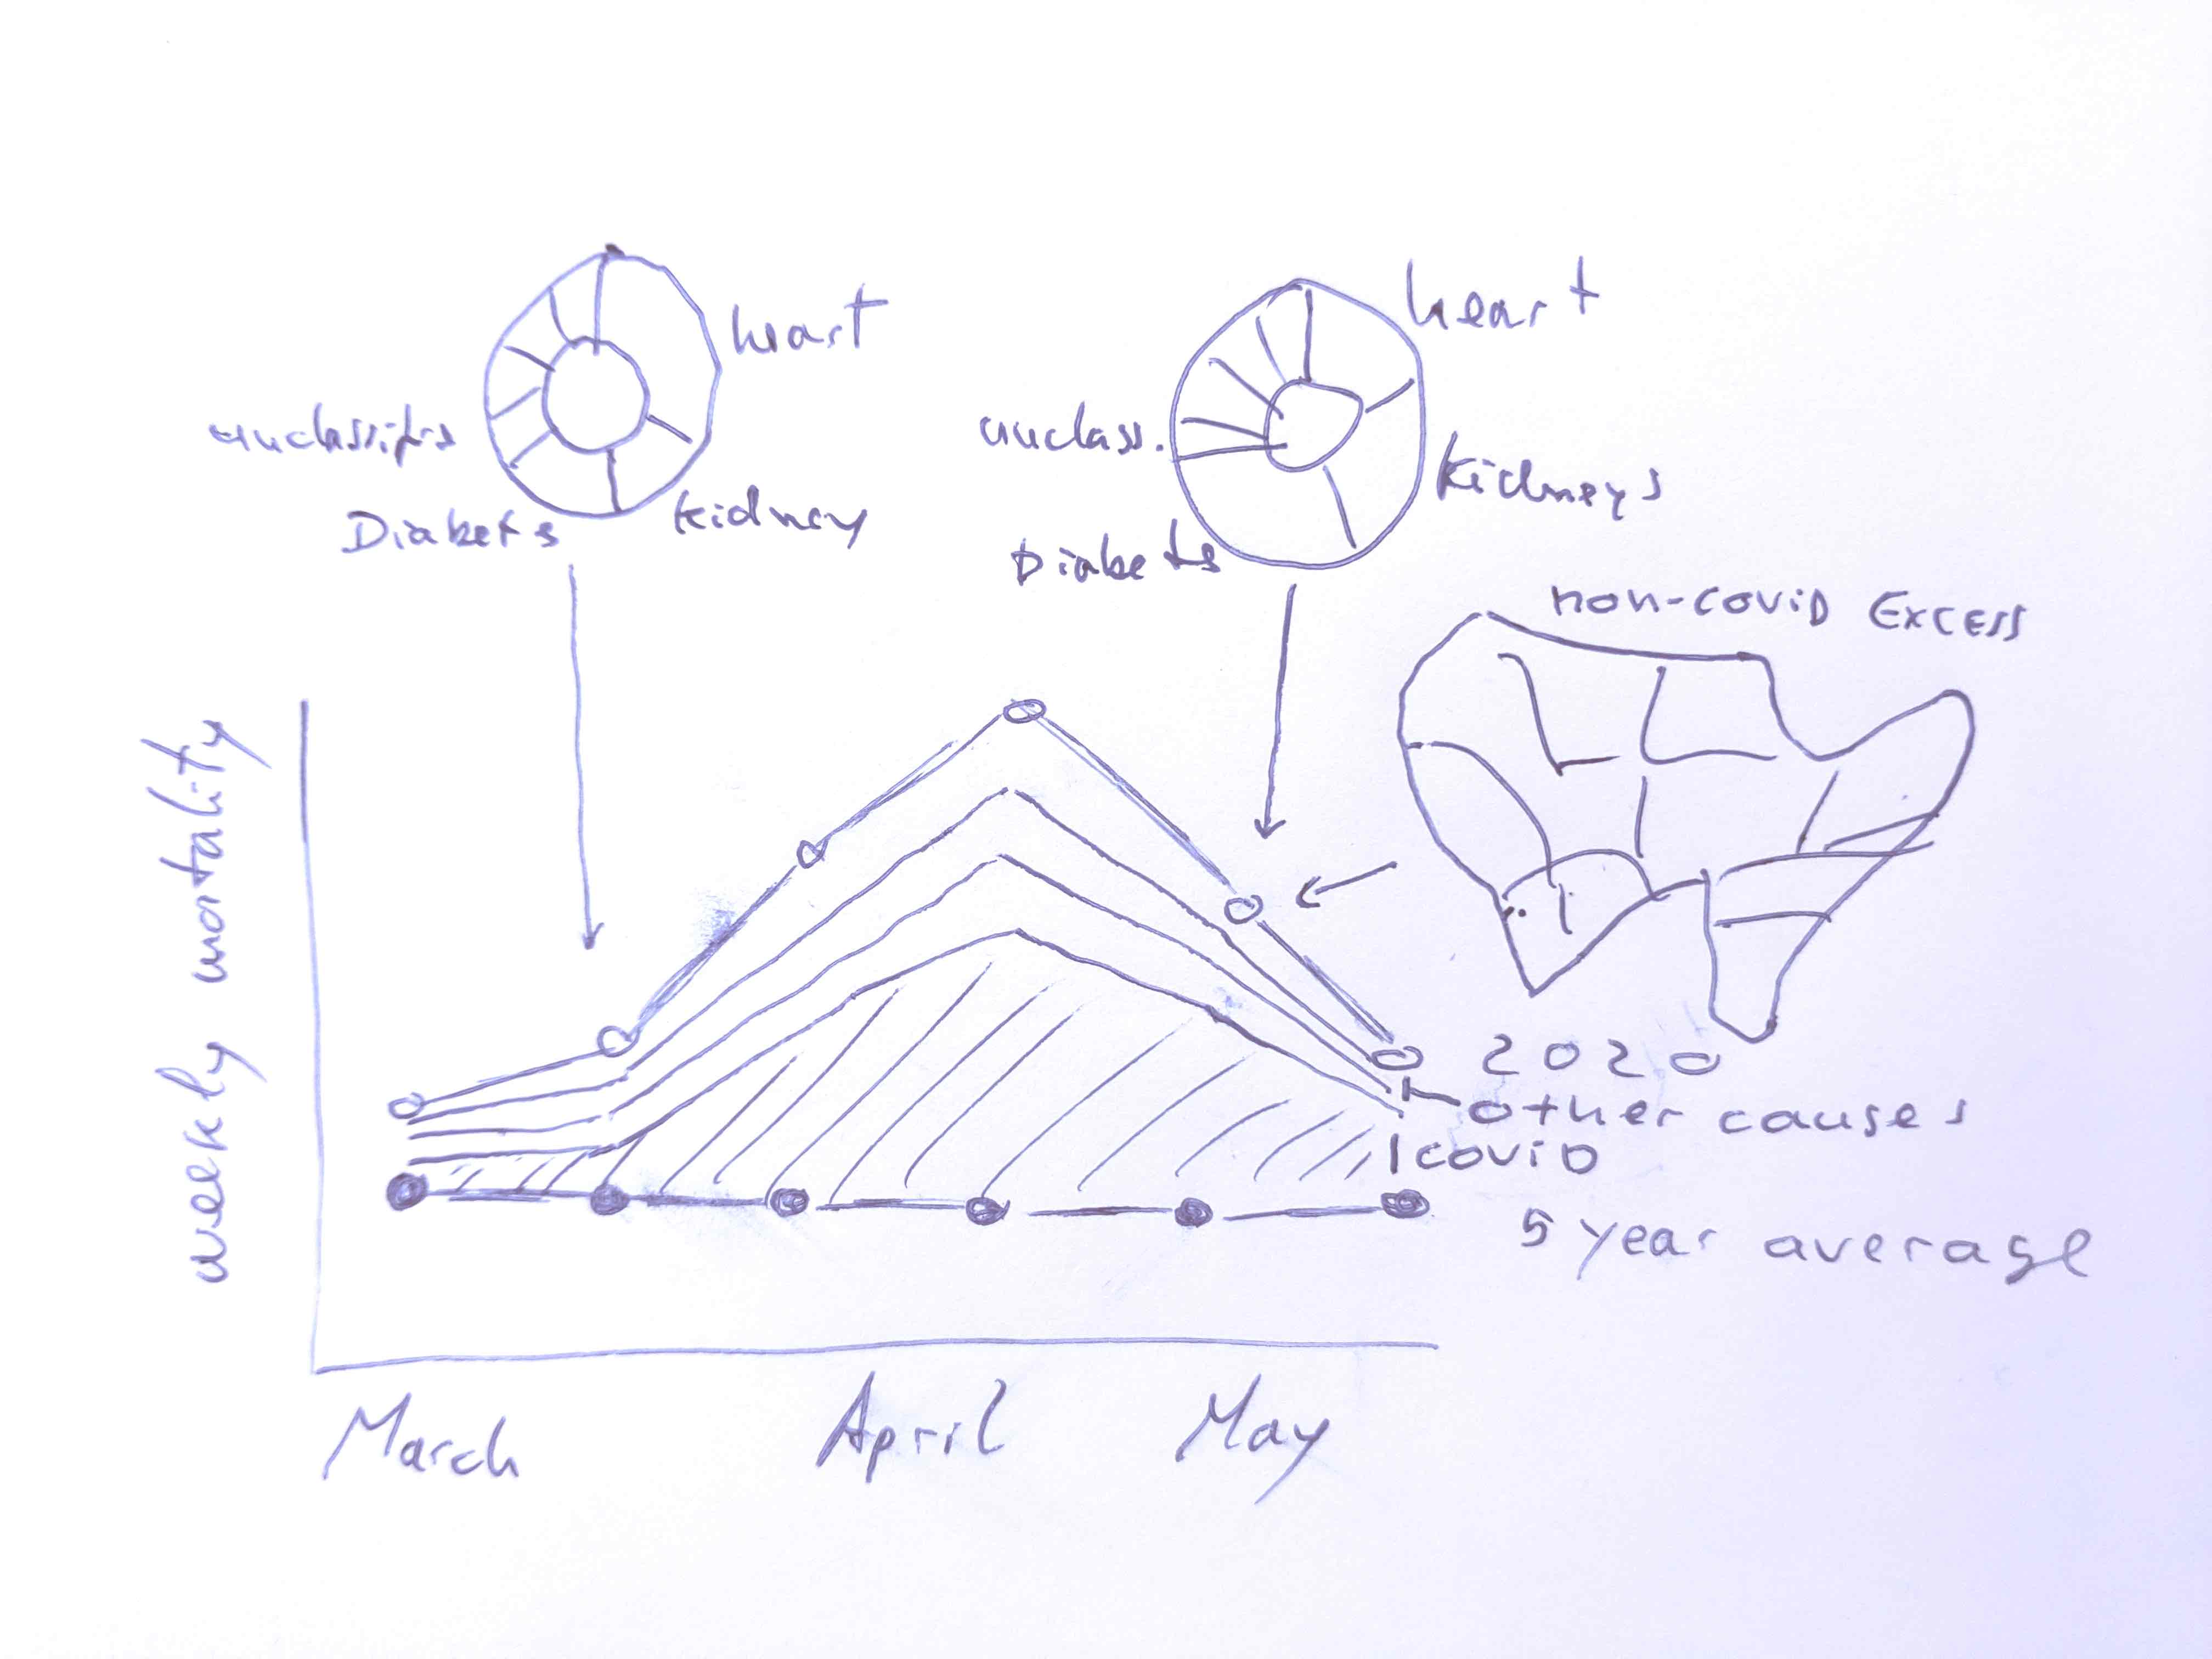 heart
kidney
Diabets
heart
unclass.
Kidneys
Diabets
non-coviD Excess
weekly mortality
2020
other causes
coviD
5 year average
March
April
May